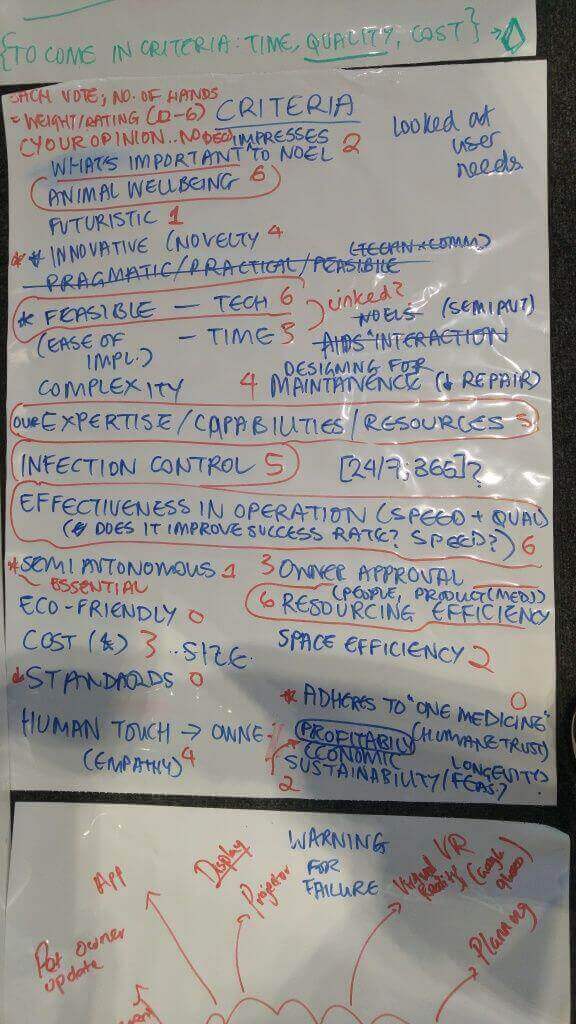 {TO COME IN CRITERIA: TIME, QUALITY, COST}
EACH VOTE; NO. OF HANDS
= WEIGHT/RATING (0-6)
CRITERIA
(YOUR OPINION.. NO
IMPRESSES
WHAT'S IMPORTANT TO NOEL 2
LOOKED AT
USER
NEEDS
ANIMAL WELLBEING 6
FUTURISTIC 1
** INNOVATIVE (NOVELTY 4
(TECHN + COMM)
PRAGMATIC/PRACTICAL/FEASIBILE
* FEASIBLE — TECH 6
} Linked?
NOELS (SEMI AUT)
(EASE OF
IMPL.)
- TIME 5
AIDS INTERACTION
COMPLEXITY 4
DESIGNING FOR
MAINTANENCE (↓ REPAIR)
OUR EXPERTISE/CAPABILITIES/RESOURCES 5
INFECTION CONTROL 5
[24/7; 365]?
EFFECTIVENESS IN OPERATION (SPEED + QUAL)
(DOES IT IMPROVE SUCCESS RATE? SPEED?) 6
*SEMI AUTONOMOUS 1
ESSENTIAL
3 OWNER APPROVAL
(PEOPLE, PRODUCT (MED))
6 RESOURCING EFFICIENCY
ECO-FRIENDLY 0
COST (£) 3 ..SIZE.
SPACE EFFICIENCY 2
STANDARDS 0
* ADHERES TO "ONE MEDICINE" 0
(HUMANE TRUST)
HUMAN TOUCH → OWNE
(EMPATHY) 4
PROFITABIL
ECONOMIC
SUSTAINABILITY/
LONGEVITY
(FEAS.?)
2
WARNING
FOR
FAILURE
App
Display
Projector
Virtual VR
Reality
(Google
Planning
Pet owner
update